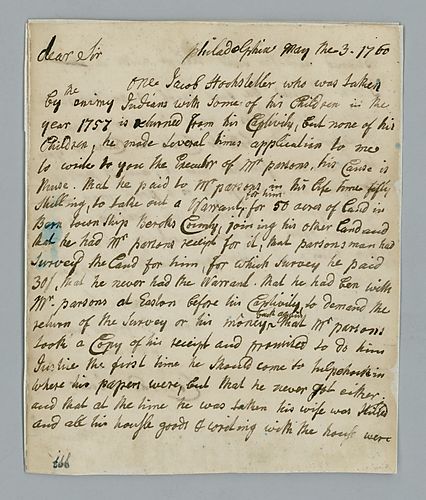 dear Sir philadelphia may the 3 - 1760
one Jacob Hochstetler who was taken
by the enimy Indians with some of his Children in the
year 1757 is returned from his Captivity, but none of his
Children, he made several times application to me
to write to you the Executor of Mr parsons, his Cause is
thuse. that he paid to Mr parsons in his life time fifty
shilling, to take out a Warrant for him for 50 acres of Land in
Bern township Beroks County, joining his other Land and
that he had Mr parsons receipt for it, that parsons man had
Survey'd the Land for him, for which Survey he paid
30/, that he never had the Warrant. that he had ben with
Mr. parsons at Easton before his Captivity, to demand the
return of the Survey or his money back again, that Mr parsons
took a Copy of his receipt and promised to do him
Justice the first time he should come to
where his papers were, but that he never got either,
and that at the time he was taken his wife was killed
and all his housle goods & writing with the house were
666